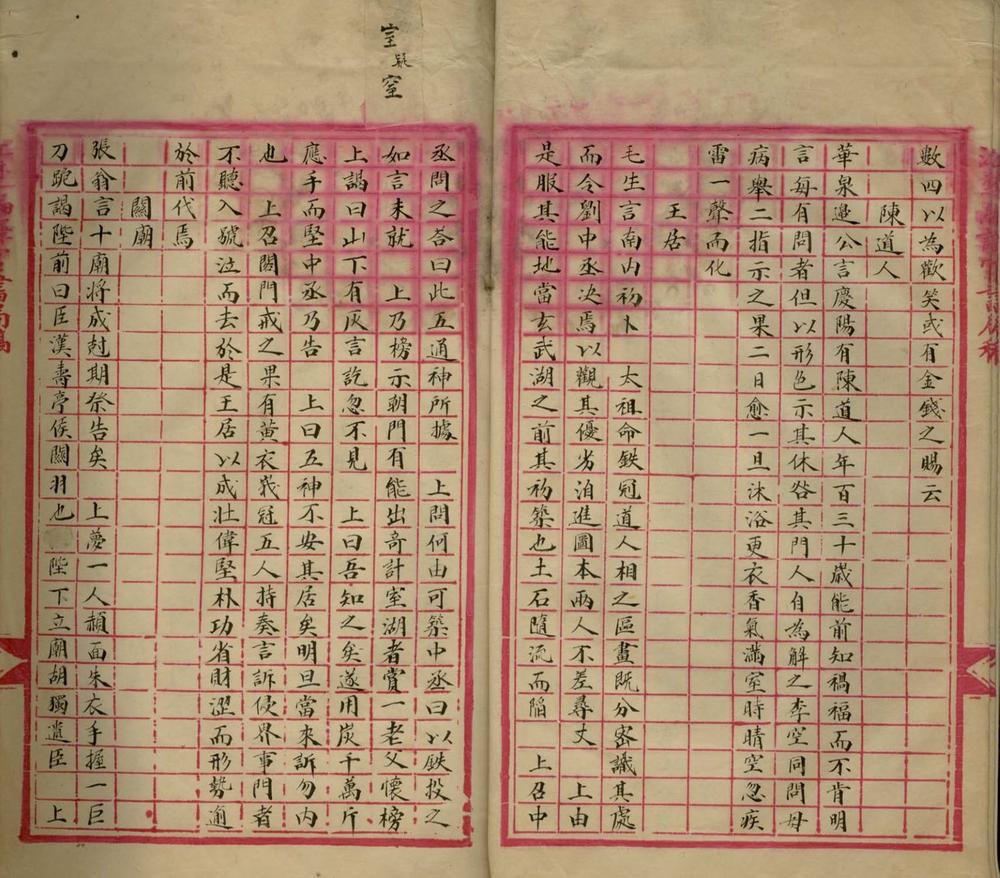 數四以為歡笑或有金錢之賜云
陳道人
華泉邊公言慶陽有陳道人年百三十歲能前知禍福而不肯明
言每有問者但以形色示其休咎其門人自為解之李空同問母
病舉二指示之果二日愈一旦沐浴更衣香氣滿室時晴空忽疾
雷一聲而化
王居
毛生言南山初卜 太祖命鉄冠道人相之區畫既分密識其處
而令劉中丞决焉以觀其優劣洎進圖本兩人不差尋丈 上由
是服其能地當玄武湖之前其初築也土石隨流而陷 上召中
室疑窒
丞問之答曰此五通神所據 上問何由可築中丞曰以鉄投之
如言未就 上乃榜示朝門有能出奇計室湖者賞一老父懷榜
上謁曰山下有灰言訖忽不見 上曰吾知之矣遂用炭千萬斤
應手而堅中丞乃告 上曰五神不安其居矣明旦當來訴勿内
也 上召閽門戒之果有黄衣峩冠五人持奏言訴侵界事門者
不聽入號泣而去於是王居以成壯偉堅朴功省財澀而形勢逾
於前代焉
關廟
張翁言十廟将成尅期祭告矣 上夢一人頳面朱衣手握一巨
刀跪謁陛前曰臣漢壽亭侯關羽也 陛下立廟胡獨遺臣 上